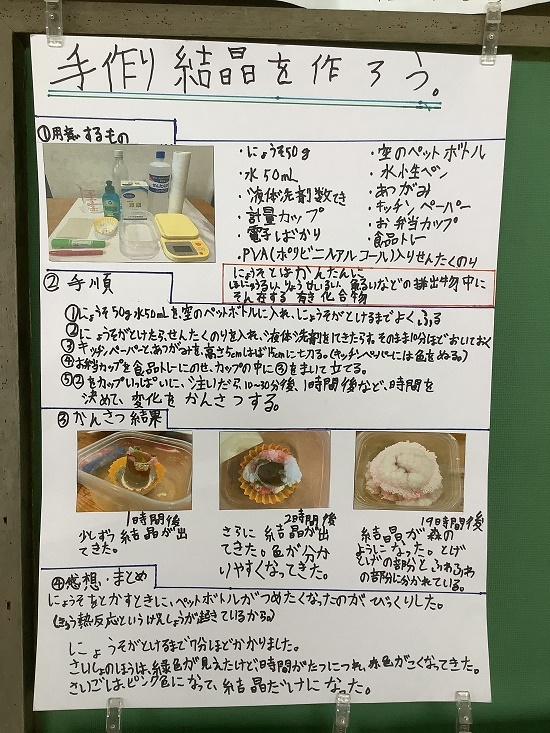 手作り結晶を作ろう。
①用意するもの
・にょうそ50g
・水50mL
・液体洗剤数てき
・計量カップ
・電子ばかり
・PVA(ポリビニルアルコール)入りせんたくのり
・空のペットボトル
・水性ペン
・あつがみ
・キッチンペーパー
・お弁当カップ
・食品トレー
にょうそとはかんたんに
ほにゅうるい、りょうせいるい、魚るいなどの排出物中に
そんざいする有き化合物
②手順
①にょうそ50g水50mLを空のペットボトルに入れ、にょうそがとけるまでよくふる
②にょうそがとけたら、せんたくのりを入れ、液体洗剤を1てきたらす。そのまま10分ほどおいておく
③キッチンペーパーと、あつがみを、高さ5cmはば15cmに切る。(キッチンペーパーには色をぬる。)
④お弁当カップを食品トレーにのせ、カップの中に③をまいて立てる。
⑤②をカップいっぱいに、注いだら10-30分後、1時間後など、時間を
決めて、変化をかんさつする。
③かんさつ結果
1時間後
少しずつ結晶が出
てきた。
2時間後
さらに結晶が出
てきた。色が分か
りやすくなってきた。
19時間後
結晶が森の
ようになった。とげ
とげの部分とふわふわ
の部分に分かれている。
④感想・まとめ
にょうそをとかすときに、ペットボトルがつめたくなったのがびっくりした。
(きゅう熱反応というげんしょうが起きているから。)
にょうそがとけるまで7分ほどかかりました。
さいしょのほうは、緑色が見えたけど、時間がたつにつれ、色がこくなってきた。
さいごしは、ピンク色になって、結晶だけになった。